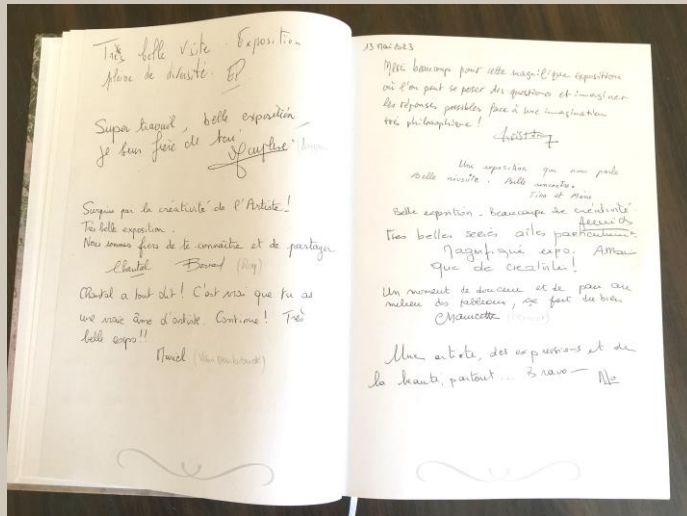 Très belle visite. Exposition
pleine de diversité. EP
Super travail, belle exposition,
je suis fière de toi.
Surprise par la créativité de l'Artiste!
Très belle exposition.
Nous sommes fiers de te connaître et de partager
Chantal Bernard
Chantal a tout dit! C'est vrai que tu as
une vraie âme d'artiste. Continue! Très
belle expo!!
Muriel
13 Mai 2023
Merci beaucoup pour cette magnifique exposition
où l'on peut se poser des questions et imaginer
les réponses possibles face à une imagination
très philosophique!
Une exposition qui nous parle
Belle réussite. Belle rencontre.
Tina et
Belle exposition. Beaucoup de créativité.
Très belles series
Magnifique expo,
que de créativité!
Un moment de douceur et de paix au
milieu des tableaux, ça fait du bien
Une artiste, des expressions et de
la beauté, partout... Bravo